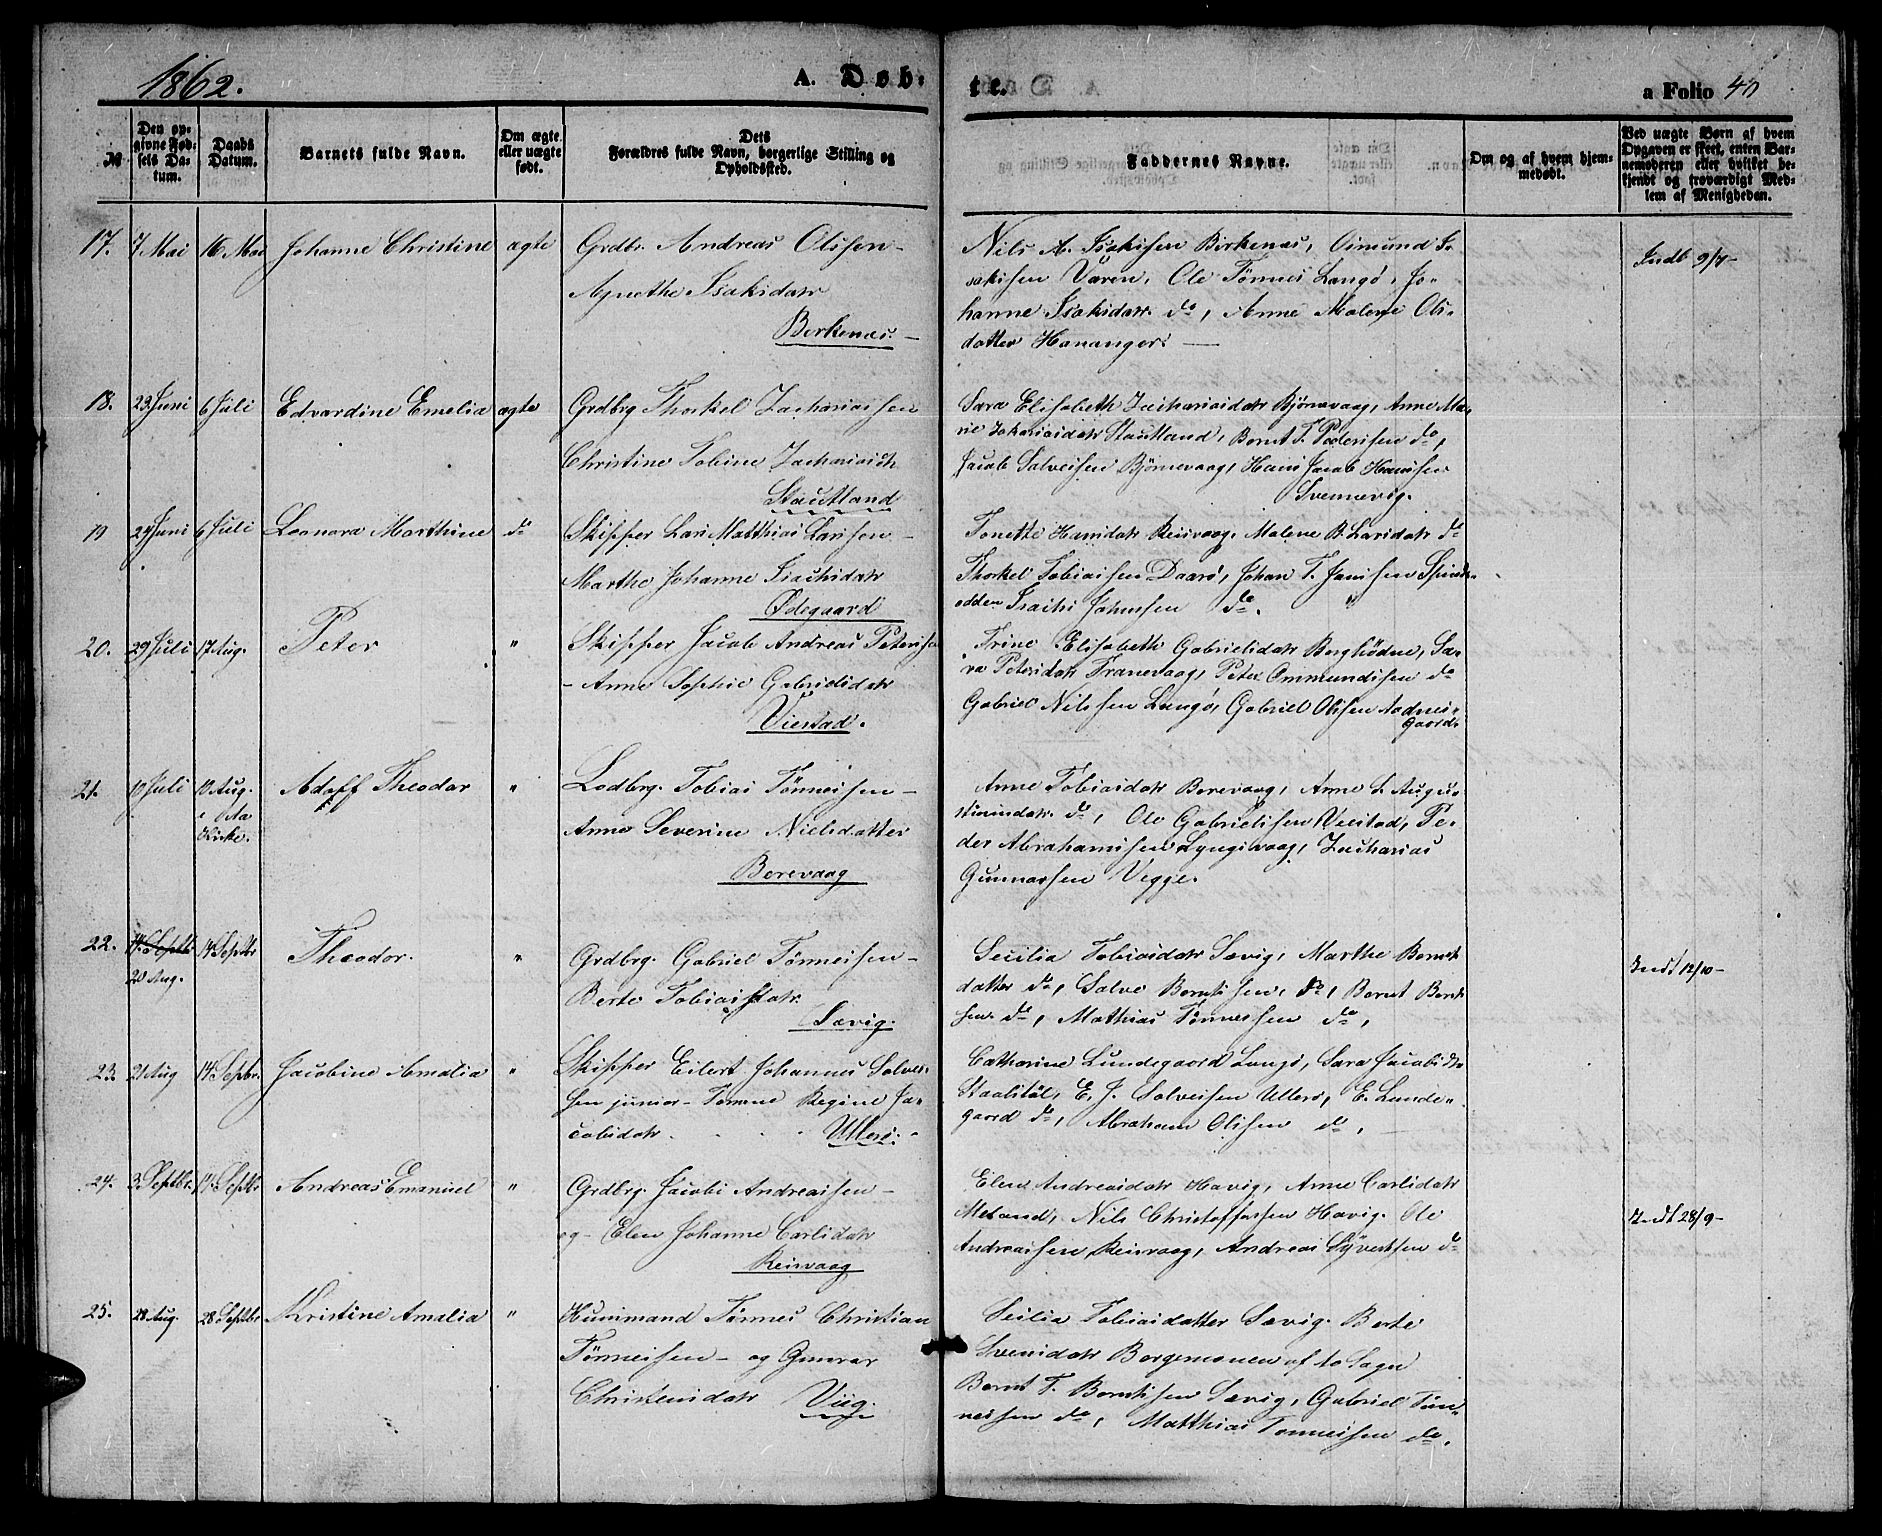 1862.
A. Døb-
te.
a Folio 40
№
Den op-
givne Fød-
sels Da-
tum.
Daabs
Datum.
Barnets fulde Navn.
Om ægte
eller uægte
født.
Dets
Forældres fulde Navn, borgerlige Stilling og
Opholdssted.
Faddernes Navne.
Om og af hvem hjem-
medøbt.
Ved uægte Børn af hvem
Opgaven er skeet, enten Bar-
nemoderen eller hvilket be-
kjendt og troværdigt Med-
lem af Menigheden.
17. 7 Mai 16 Mai Johanne Christine ægte
Grdbr. Andreas Olssen -
Agnethe Isaksdatr
Birkenæs. -
Nils A. Isaksen Birkenæs, Osmund I-
saksen Varen, Ole Tønnes Langø, Jo-
hanne Isaksdatr. do, Anne Malene Ols-
datter Hananger. -
Indt 9/7 -
18. 23 Juni 6 Juli Edvardine Emelia ægte
Grdbrg Thorkel Zachariassen
Christine Tobine Zachariasdtr
Stautland
Sara Elisabeth Zachariasdatr Bjørnevaag, Anne Ma-
rie Zakariasdatr Stautland, Bernt T. Pedersen do,
Jacob Salvesen Bjørnevaag, Hans Jacob Hansen
Svennevig.
19 24 Juni 6 Juli Leonora Marthine do
Skipper Lars Matthias Larsen -
Marthe Johanne Isachsdatr
Ødegaard
Tonette Hansdatr Reisvaag. Malene B. Larsdatr do
Thorkel Tobiassen Daarø, Johan T. Jansen Spinds-
odden Isachs Johnssen do. "
20. 29 Juli 17 Aug. Peter "
Skipper Jacob Andreas Petersen
- Anne Sophie Gabrielsdatr
Viestad.
Trine Elisabeth Gabrielsdatr Borghødne, Sa-
ra Petersdatr Tranevaag, Peter Ommundsen do
Gabriel Nilssen Langø, Gabriel Olssen Aadnes-
gaard.
21. 10 Juli 10 Aug.
i Aa
Kirke.
Adolf Theodor "
Lodbrg. Tobias Tønnessen -
Anne Severine Nielsdatter
Borevaag
Anne Tobiasdatr Borevaag, Anne S. Augu-
stinusdatr. do, Ole Gabrielsen Viestad, Pe-
der Abrahamsen Lyngsvaag, Zacharias
Gunnarsen Vegge.
22. 14 Septbr.
20 Aug.
14 Septbr Theodor. "
Grdbrg. Gabriel Tønnessen -
Berte Tobiasdatr
Sævig.
Secilia Tobiasdatr Sævig, Marthe Bernt
datter do, Salve Berntsen, do, Bernt Bernt
sen do, Mathias Tønnessen do,
Indt 12/10 -
23. 21 Aug 14 Sepbr. Jacobine Amalia "
Skipper Eilert Johannes Salve-
sen junior - Tomine Regine Ja-
cobsdatr Ullerø. -
Catharine Lundegaard Langø, Sara Jacobsdtr
E. J. Salvesen Ullerø, E. Lunde-
gaard do, Abraham Olssen do,
24. 3 Septbr. 14 Septbr Andreas Emanuel "
Grdbrg. Jacob Andreassen -
og - Elen Johanne Carlsdatr
Reisvaag
Elen Andreasdatr Havig, Anne Carlsdatr
Meland, Nils Christoffersen Havig. Ole
Andreassen Reisvaag, Andreas Syvertsen do
Indt 28/9 -
25. 28 Aug. 28 Septbr Kristine Amalia "
Huusmand Tønnes Christian
Tønnessen - og Gunvor
Christensdatr Viig.
Secilia Tobiasdatter Sævig. Berte
Svensdatr Borgemonen af Aa Sogn
Bernt T. Berntsen Sævig, Gabriel Tøn-
nessen do, Matthias Tønnessen do.